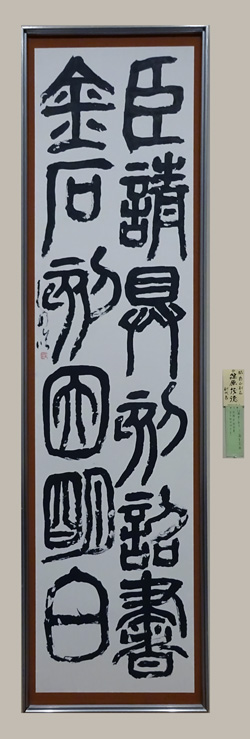 臣請具刻詔書
金石刻因明白